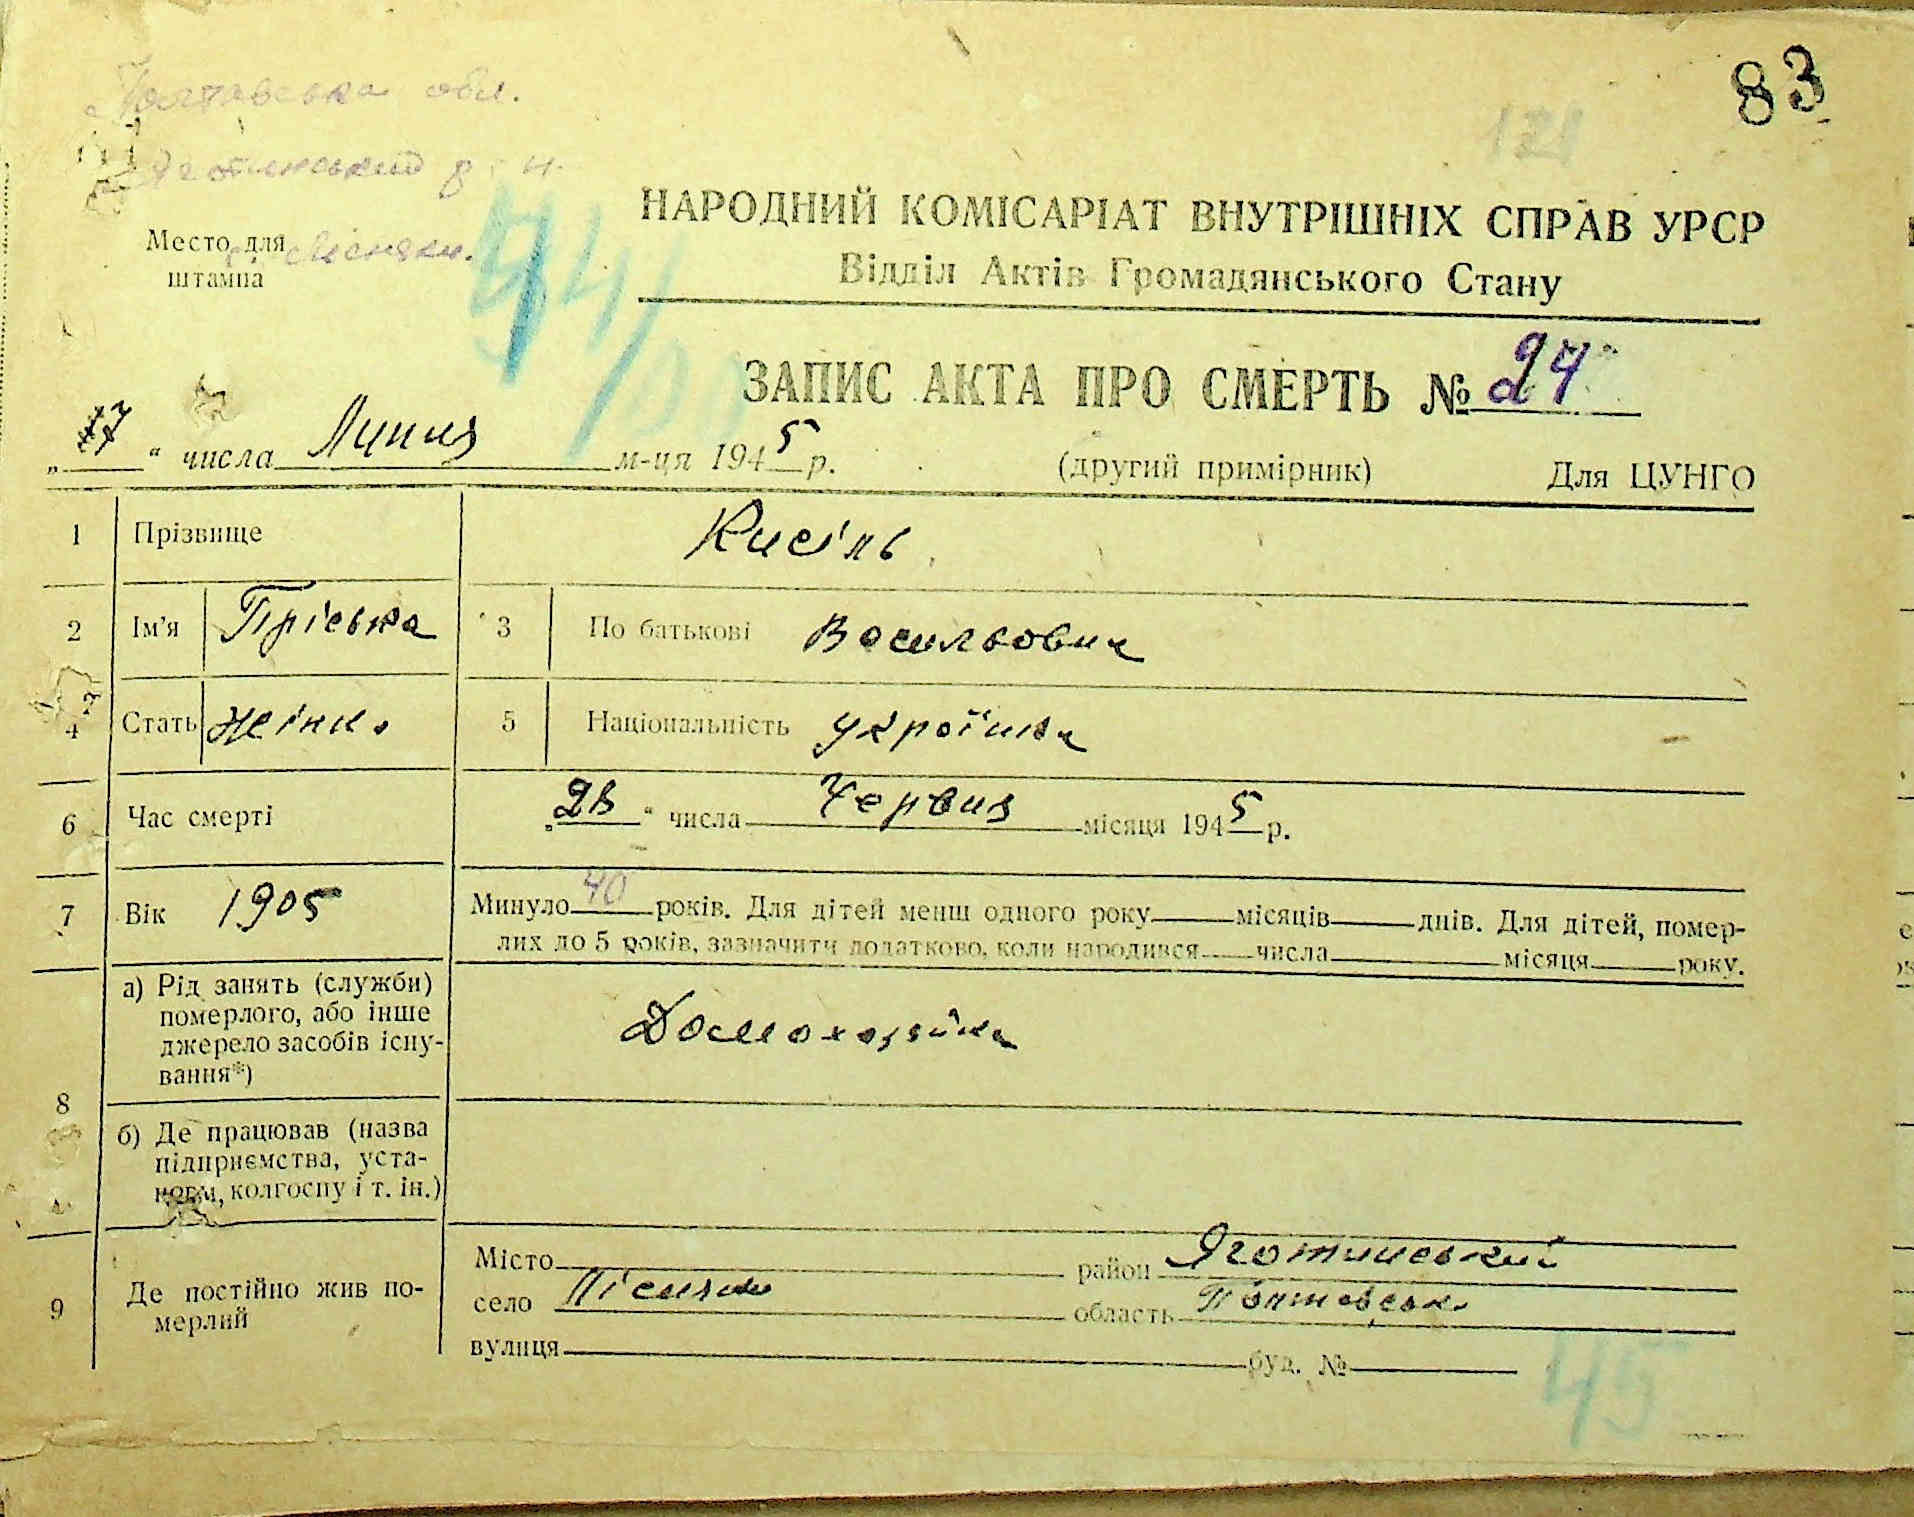 83
Полтавська обл.
Яготинський р-н.
с. Лісняки.
Место для
штампа
НАРОДНИЙ КОМІСАРІАТ ВНУТРІШНІХ СПРАВ УРСР
Відділ Актів Громадянського Стану
ЗАПИС АКТА ПРО СМЕРТЬ № 24
„17“ числа Липня м-ця 1945 р. (другий примірник) Для ЦУНГО
1 Прізвище Кисіль
2 Ім’я Пріська 3 По батькові Васильовна
4 Стать жінка 5 Національність українка
6 Час смерті „28“ числа Червня місяця 1945 р.
7 Вік 1905 Минуло 40 років. Для дітей менш одного року місяців днів. Для дітей, помер-
лих до 5 років, зазначити додатково, коли народився числа місяця року.
8 а) Рід занять (служби)
померлого, або інше
джерело засобів існу-
вання*)
Домохозяйка
б) Де працював (назва
підприємства, уста-
нови, колгоспу і т. ін.)
9 Де постійно жив по-
мерлий
Місто район Яготинський
село Лісняки область Полтавськ.
вулиця буд. №
45